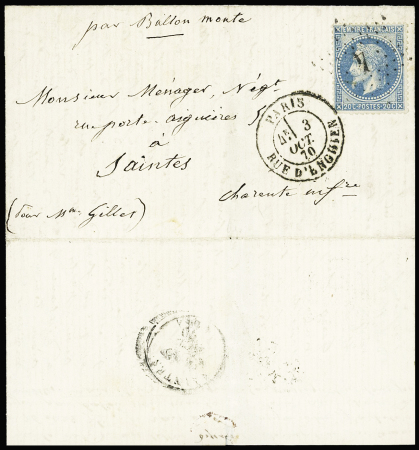 par Ballon monté
EMPIRE FRANÇAIS
20 c. POSTES 20 c.
Monsieur Ménager, Négt
rue porte-aiguières 5
à
Saintes
Charente infre
(pour Mme Gilles)
PARIS
3
OCT.
70
RUE D'ENGHIEN